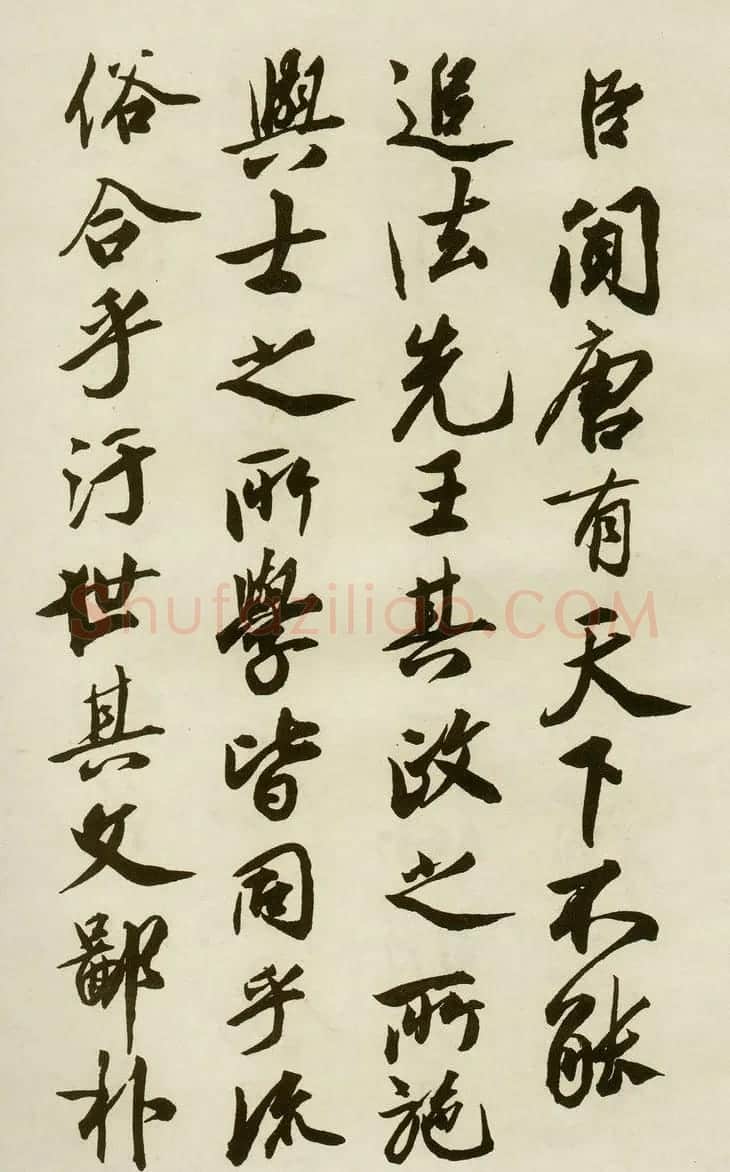 臣闻唐有天下不能
追法先王其政之所施
與士之所學皆同乎流
俗合乎污世其文鄙朴
Shufaziliao.COM